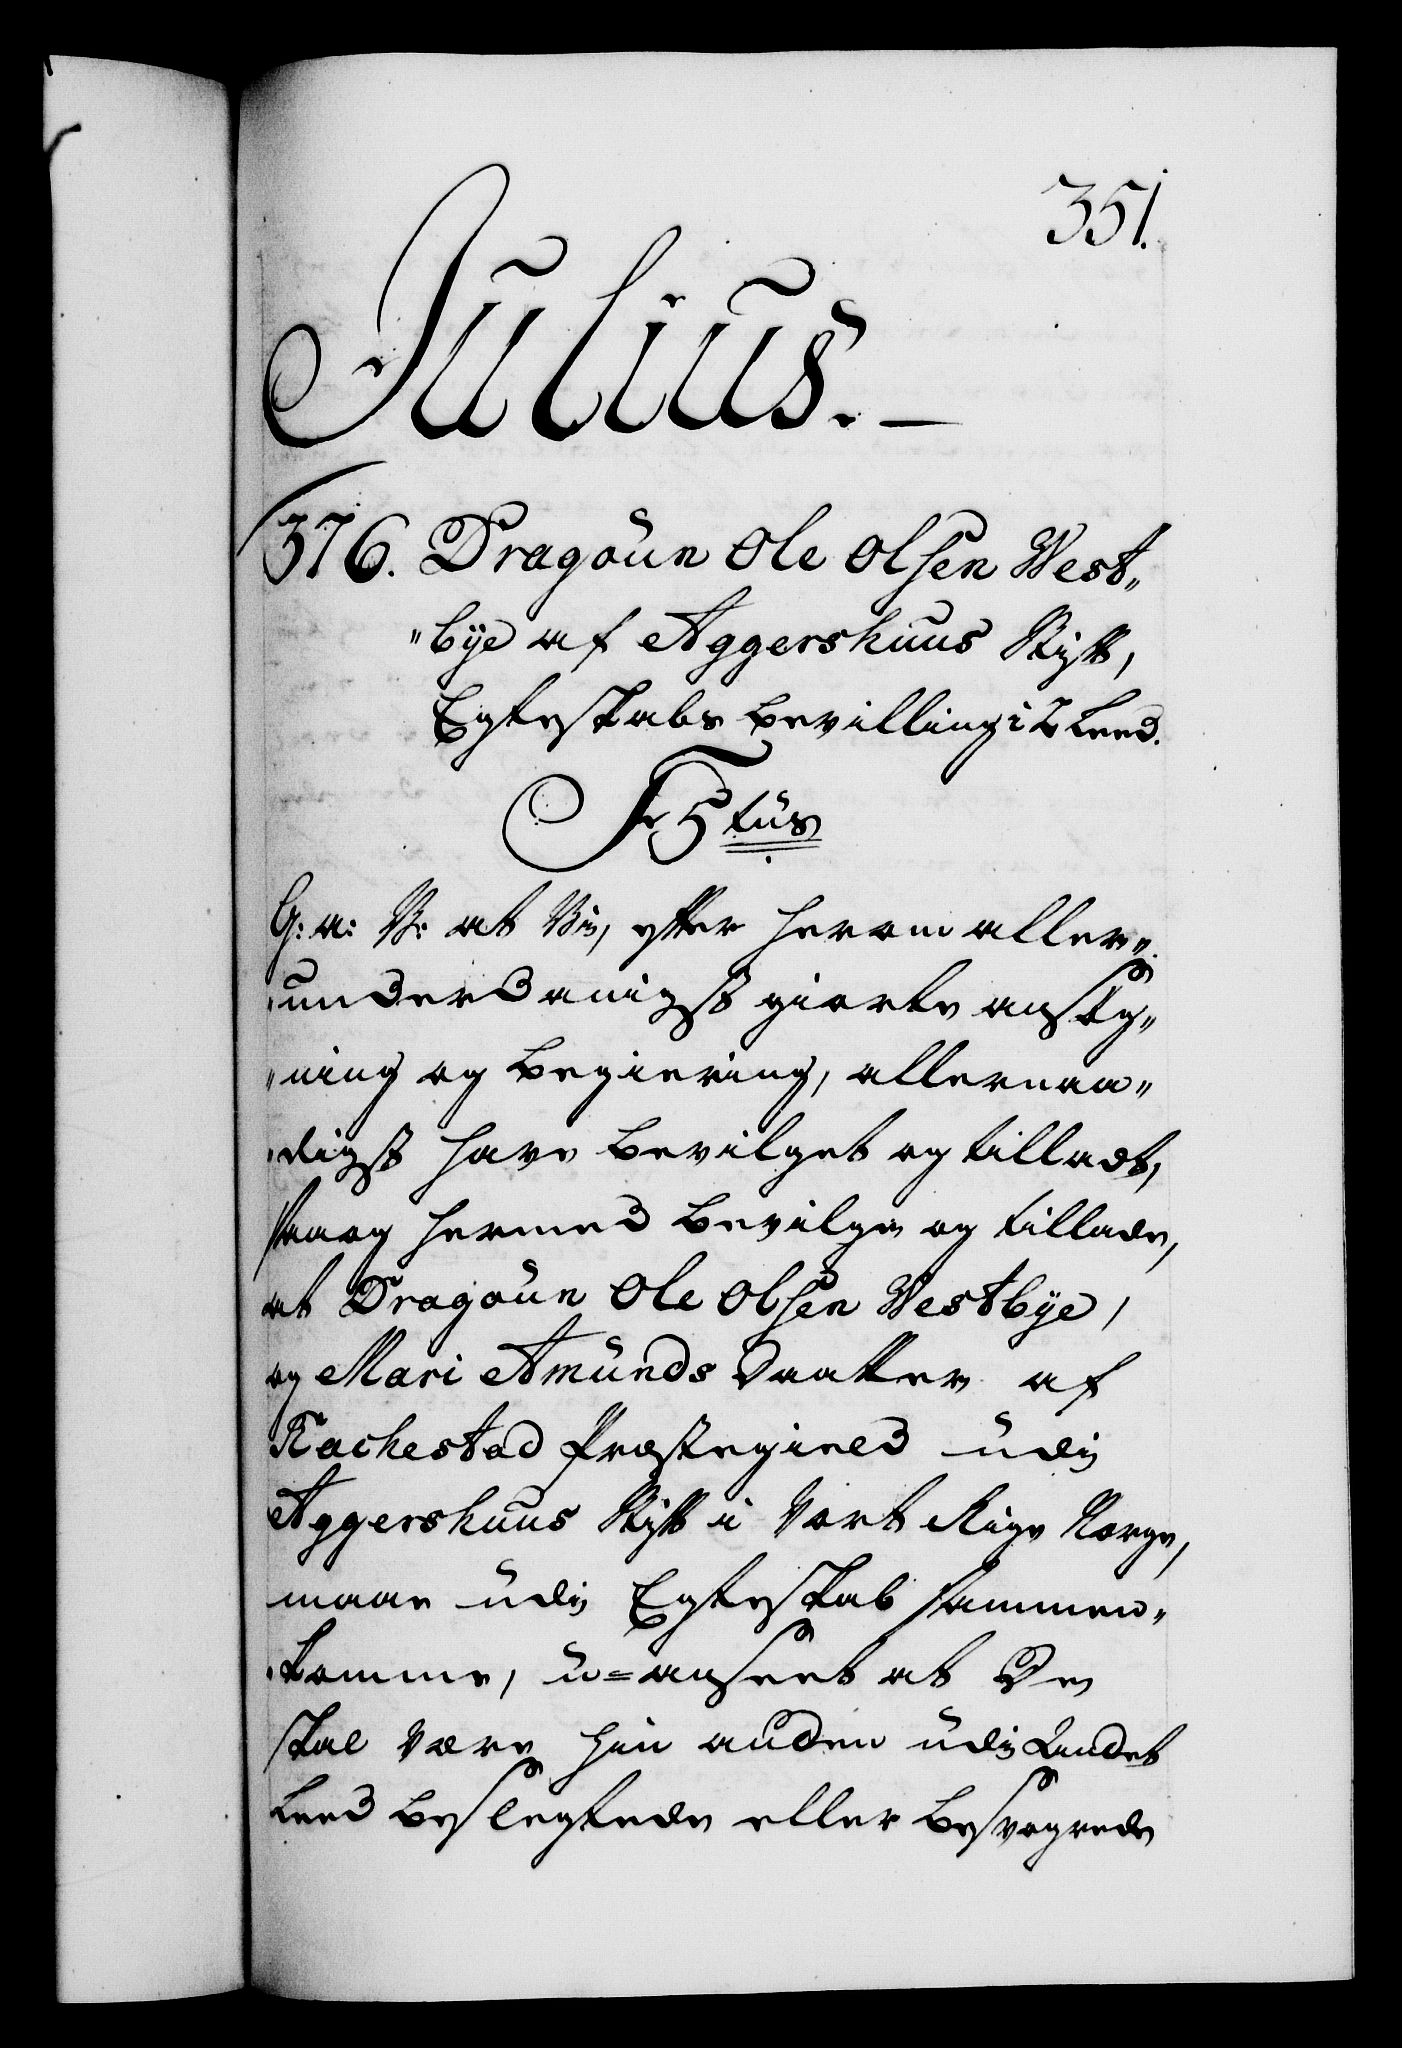 351.
Julius. —
376. Dragoun Ole Olsen West„
„bye af Aggershuus Stift,
Egteskabs bevilling i 2 Leed.
F 5 tus
G: a: V: at Vi, efter herom aller„
„underdanigst giorte ansøg„
„ning og begiering, allernaa„
„digst have bevilget og tilladt,
saa og hermed bevilge og tillade,
at Dragoun Ole Olsen Westbye,
og Mari Amunds Daatter af
Rachestad Præstegield udi
Aggershuus Stift i Vort Rige Norge,
maae udi Egteskab sammen„
„komme, u=anseet at De
skal være hin anden udi Andet
Leed beslegtede eller besvogrede